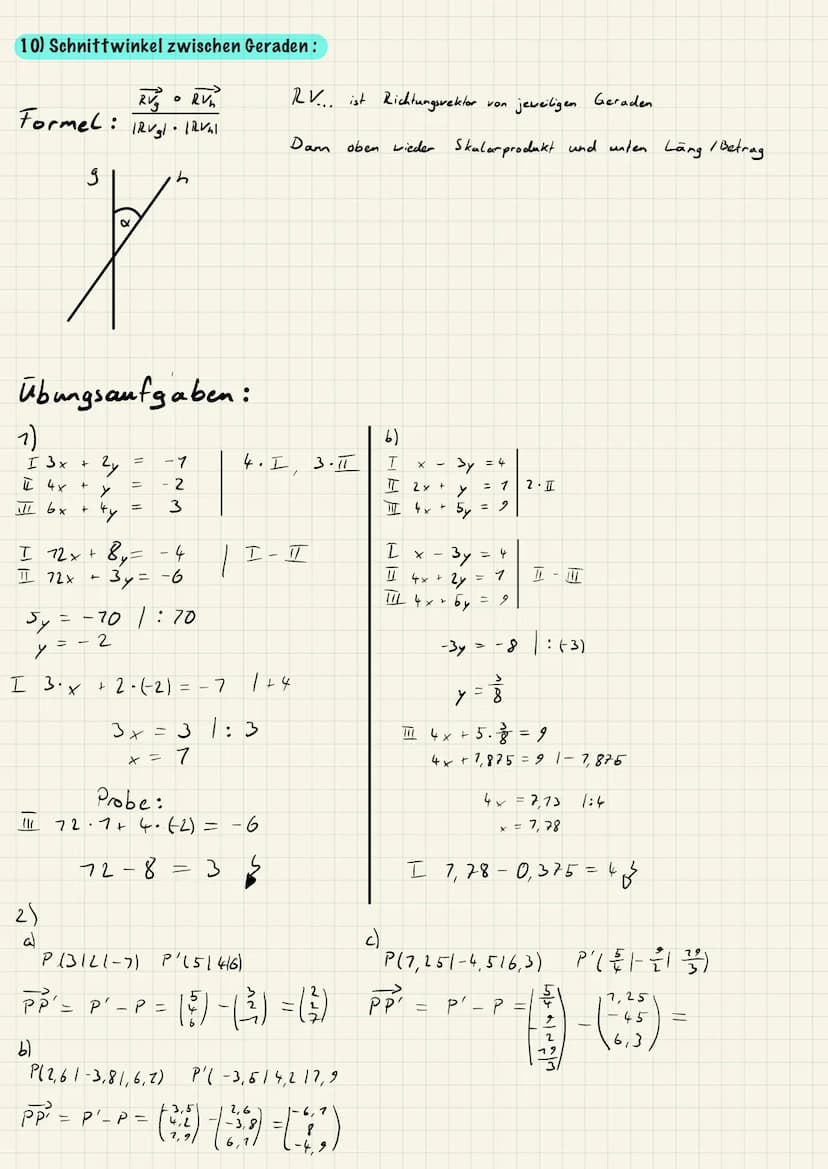 10) Schnittwinkel zwischen Geraden :
Formel : RVg ∘ RVh / |RVg| · |RVh|
RV... ist Richtungsvektor von jeweiligen Geraden
Dann oben wieder Skalarprodukt und unten Läng / Betrag
g h
α
Übungsaufgaben :
1)
I 3x + 2y = -1 | 4·I, 3·II
II 4x + y = -2
III 6x + 4y = 3
I 12x + 8y = -4 | I - II
II 12x + 3y = -6
5y = -10 | : 10
y = -2
I 3·x + 2·(-2) = -1 | +4
3x = 3 | : 3
x = 1
Probe :
III 12·1 + 4·(-2) = -6
12 - 8 = 3 ↯
b)
I x - 3y = 4
II 2x + y = 1 | 2·II
III 4x + 5y = 9
I x - 3y = 4
II 4x + 2y = 1 | II - III
III 4x + 5y = 9
-3y = -8 | : (-3)
y = 3/8
III 4x + 5·3/8 = 9
4x + 1,875 = 9 | - 1,875
4x = 7,13 | :4
x = 1,78
I 1,78 - 0,375 = 4 ↯
2)
a)
P(3|2|-1) P'(5|4|6)
PP' = P' - P = (5 4 6) - (3 2 -1) = (2 2 7)
b)
P(2,6|-3,8|6,1) P'(-3,5|4,2|1,9
PP' = P' - P = (-3,5 4,2 1,9) - (2,6 -3,8 6,1) = (-6,1 8 -4,9)
c)
P(1,25|-4,5|6,3) P'(5/4|-9/2|19/3)
PP' = P' - P = (5/4 -9/2 19/3) - (1,25 -4,5 6,3) =